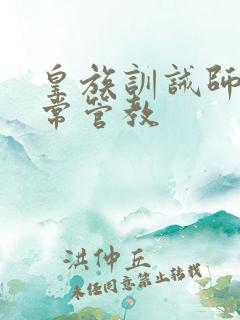 皇族訓誡師
常管教
洪仲丘
未经同意禁止转载